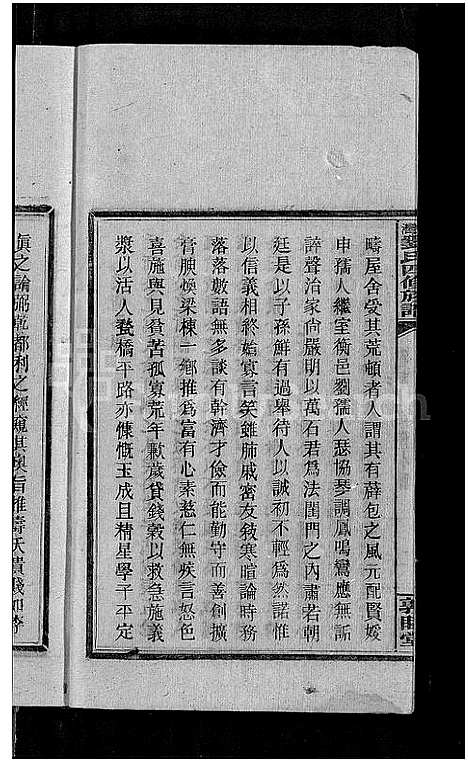 疇屋舍受其荒頓者人謂其有薛包之風元配賢媛
申孺人繼室衡邑劉孺人瑟協琴調鳳鳴鸞應無詬
誶聲治家尙嚴明以萬石君爲法閨門之內肅若朝
廷是以子孫鮮有過舉待人以誠初不輕爲然諾惟
以信義相終始寡言笑雖肺戚密友敍寒暄論時務
落落數語無多談有幹濟才儉而能勤守而善創擴
膏腴煥梁棟一鄉推爲富有心素慈仁無疾言怒色
喜施與見貧苦孤寡荒年歉歲貸錢穀以救急施義
漿以活人甃橋平路亦慷慨玉成且精星學子平定
眞之論瑯玕都利之經窺其奧旨推壽夭貴賤如李
氏四修族譜
敦睦堂